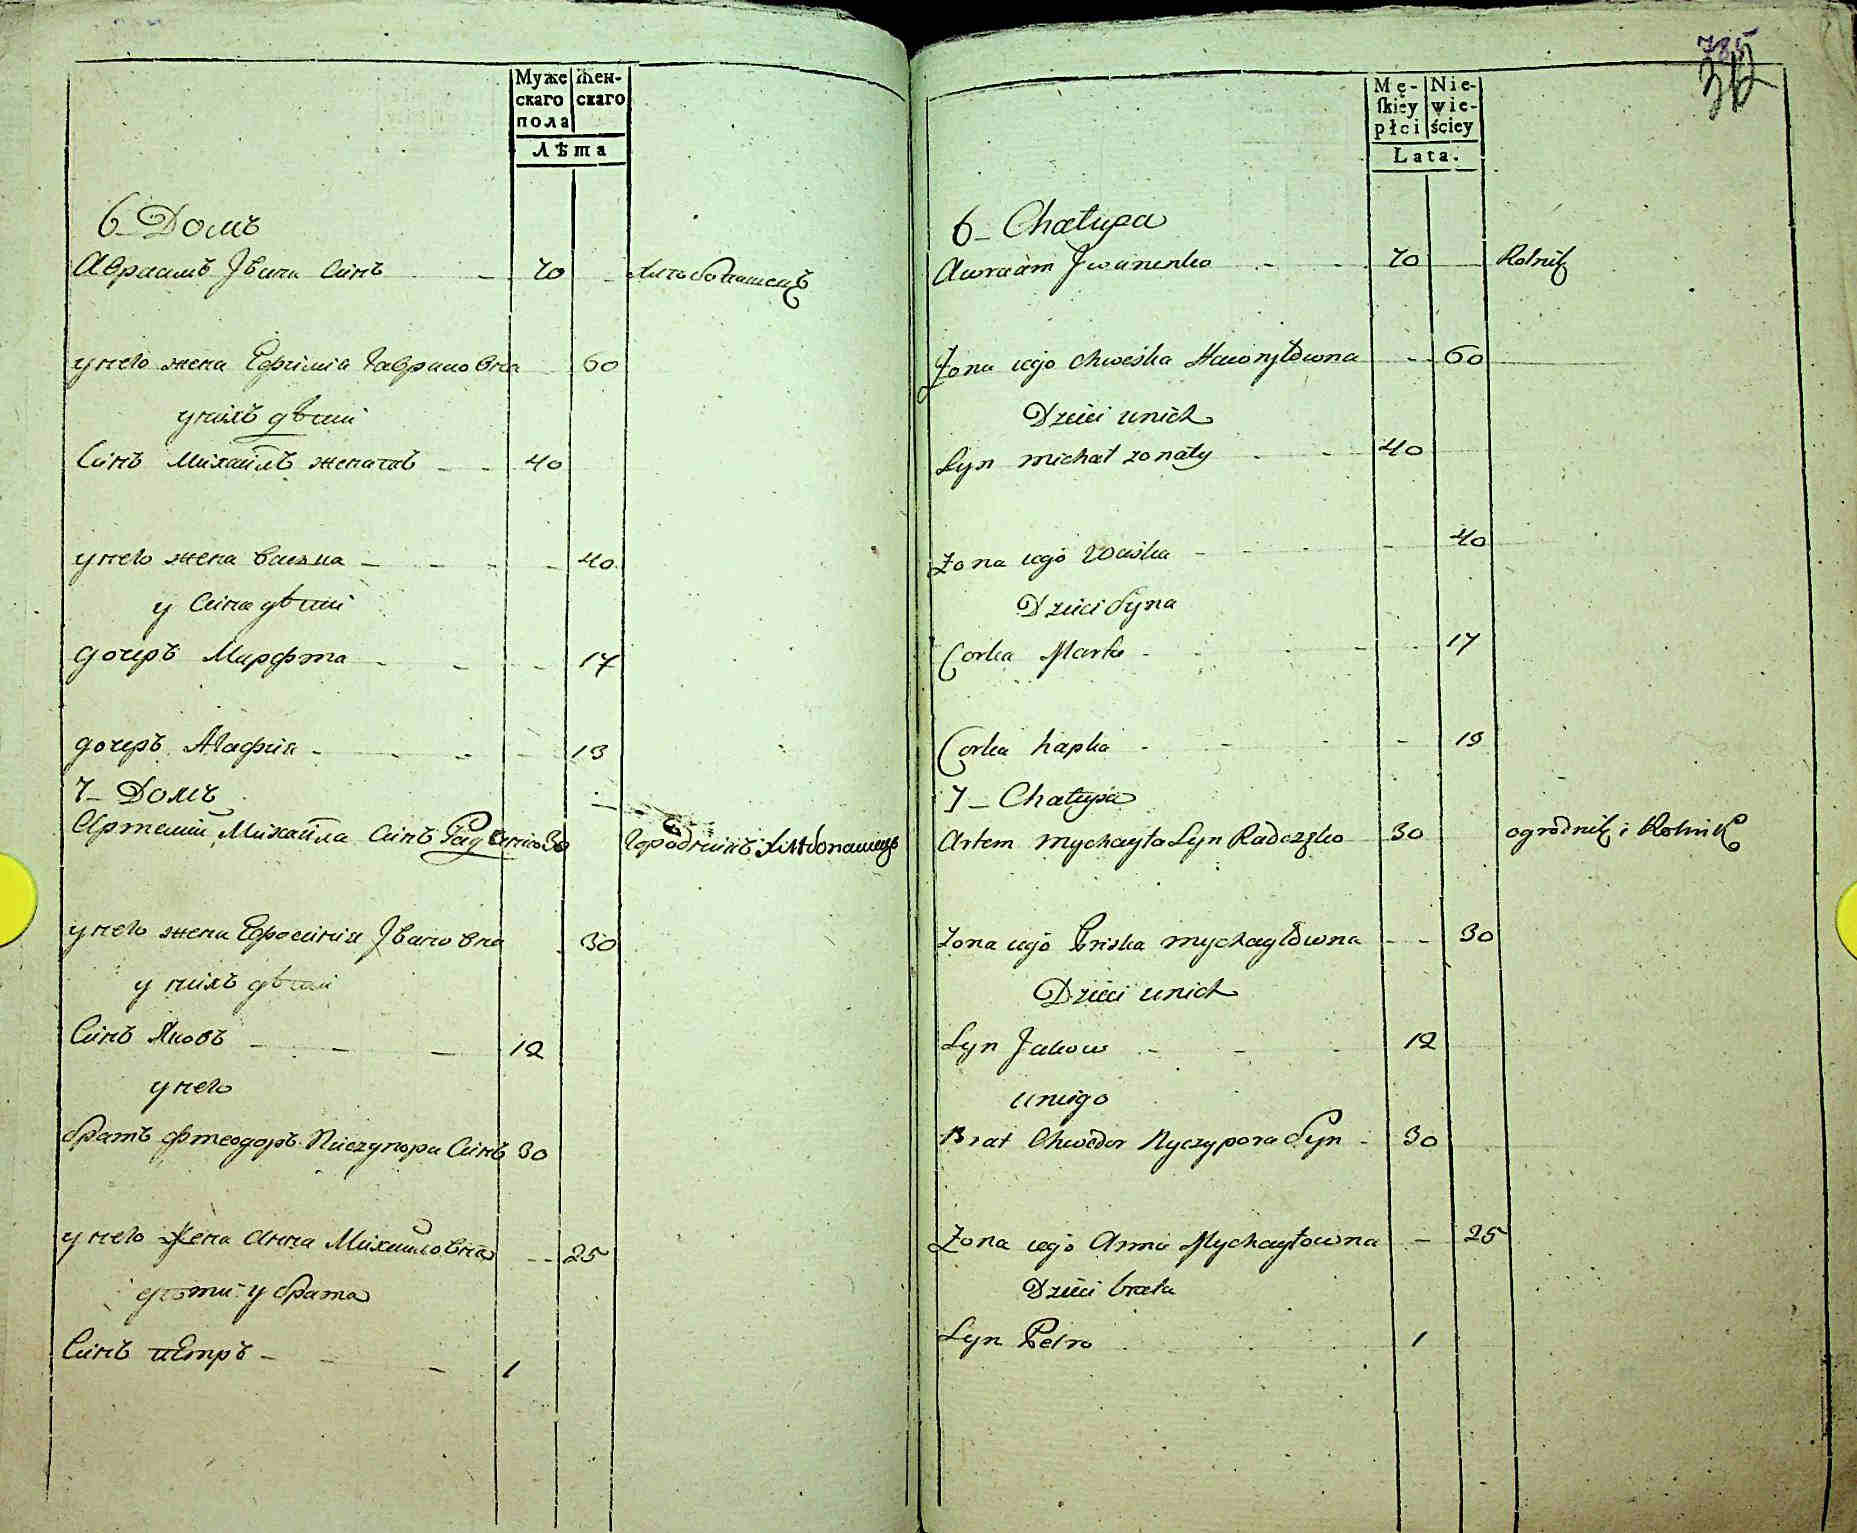 Муже Жен-
скаго скаго
пола
Лѣта
6 Домъ
Авраамъ Iвана Синъ 70 хлѣбопашецъ
у него жена Ефимiа Гавриловна 60
у нихъ дѣти
Синъ Михаилъ женатъ 40
у него жена Васка 40
у Сина дѣти
дочеръ Марфта 17
дочеръ Агафия 13
7 Домъ
Артемiй Михайла Синъ 30 Городникъ хлѣбопашецъ
у него жена Ефросиния Iвановна 30
у нихъ дѣти
Синъ Яковъ 12
у него
братъ Фтеодоръ Ничипора Синъ 30
у него Жена Анна Михаиловна 25
дѣти у брата
Синъ Петръ 1
785
32
Mę- Nie-
ſkiey wie-
płci ściey
Lata.
6 Chałupa
Awraam Jwanenko 70 Rolnik
Zona iego Chweśka Hawryłowna 60
Dzieci unich
Syn michał zonaty 40
Zona iego Waśka 40
Dzieci Syna
Corka Marta 17
Corka hapka 13
7 Chałupa
Artem Mychayła Syn Radczęko 30 ogrodnik i Rolnik
Zona iego Priska Mychayłowna 30
Dzieci unich
Syn Jakow 12
uniego
Brat Chwedor Nyczypora Syn 30
Zona iego Anna Mychayłowna 25
Dzieci brata
Syn Petro 1